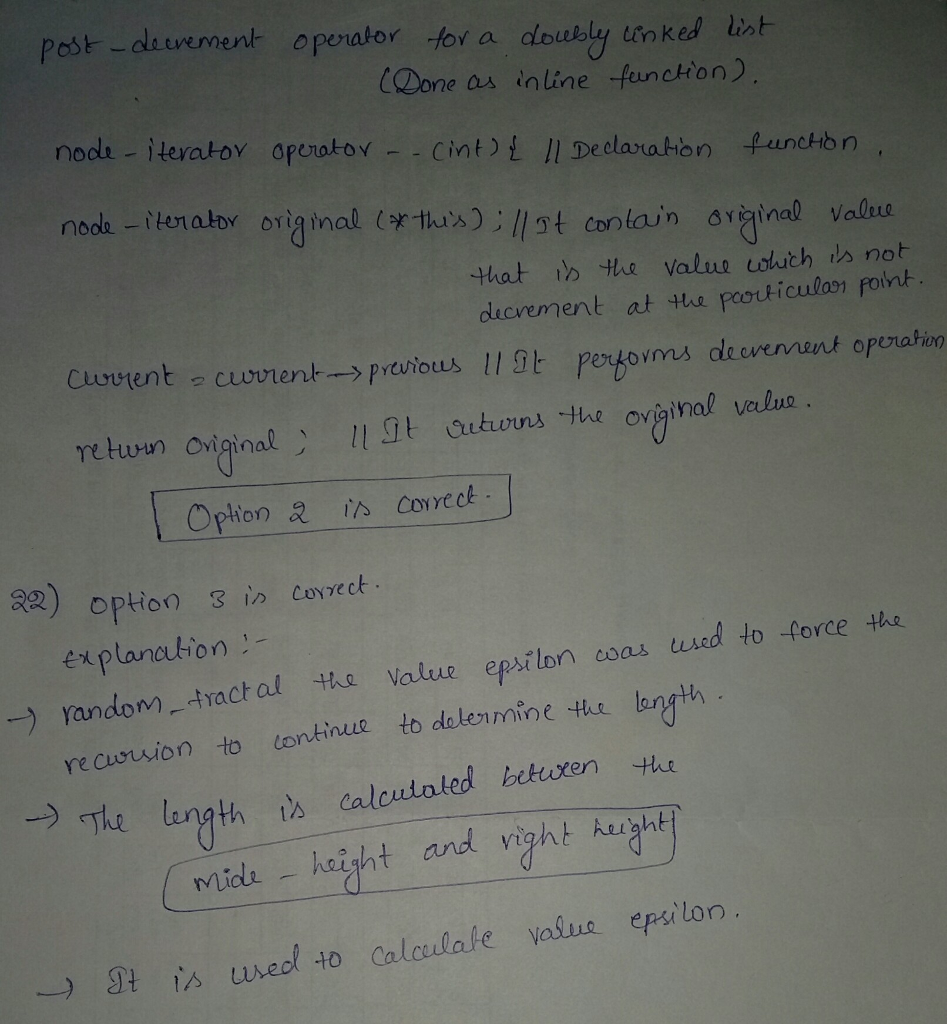 post-decrement operator for a doubly linked list
(Done as inline function).
node-iterator operator -- (int) { // Declaration function.
node-iterator original (*this); // It contain original value
that is the value which is not
decrement at the particular point.
current = current → previous // It performs decrement operation
return original; // It returns the original value.
Option 2 is correct.
22) option 3 is correct.
explanation :-
→ random_fractal the value epsilon was used to force the
recursion to continue to determine the length.
→ The length is calculated between the
mide - height and right height
→ It is used to calculate value epsilon.